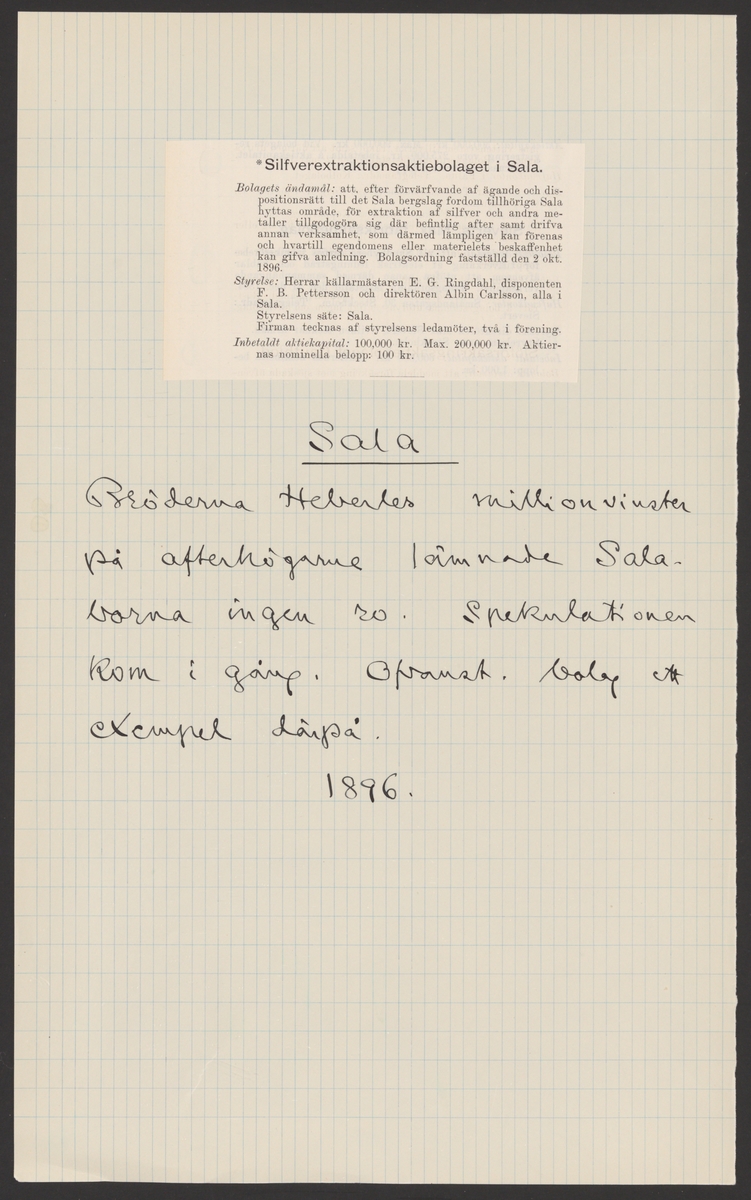 *Silfverextraktionsaktiebolaget i Sala.
Bolagets ändamål: att, efter förvärfvande af ägande och dis-
positionsrätt till det Sala bergslag fordom tillhöriga Sala
hyttas område, för extraktion af silfver och andra me-
taller tillgodogöra sig där befintlig after samt drifva
annan verksamhet, som därmed lämpligen kan förenas
och hvartill egendomens eller materielets beskaffenhet
kan gifva anledning. Bolagsordning fastställd den 2 okt.
1896.
Styrelse: Herrar källarmästaren E. G. Ringdahl, disponenten
F. B. Pettersson och direktören Albin Carlsson, alla i
Sala.
Styrelsens säte: Sala.
Firman tecknas af styrelsens ledamöter, två i förening.
Inbetaldt aktiekapital: 100,000 kr. Max. 200,000 kr. Aktier-
nas nominella belopp: 100 kr.
Sala
Bröderna Heberles millionvinster
på afterhögarne lämnade Sala-
borna ingen ro. Spekulationen
kom i gång. Ofvanst. bolag ett
exempel därpå.
1896.